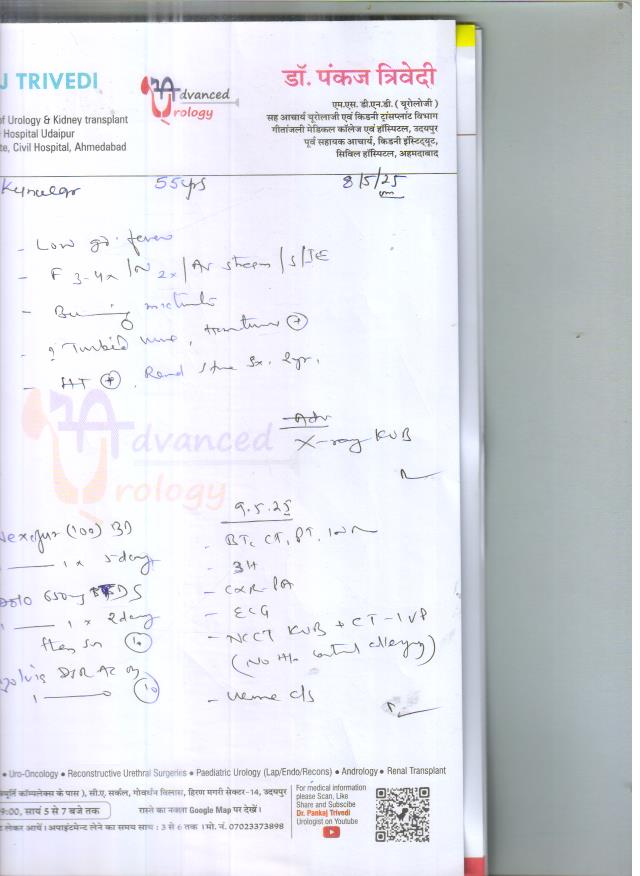 J TRIVEDI
of Urology & Kidney transplant
Hospital Udaipur
te, Civil Hospital, Ahmedabad
Advanced
Urology
डॉ. पंकज त्रिवेदी
एम.एस. डी.एन.बी. ( यूरोलोजी )
सह आचार्य यूरोलोजी एवं किडनी ट्रांसप्लांट विभाग
गीतांजली मेडिकल कॉलेज एवं हॉस्पिटल, उदयपुर
पूर्व सहायक आचार्य, किडनी इंस्टिट्यूट,
सिविल हॉस्पिटल, अहमदाबाद
55yrs 8/5/25
- Low gr. fever
- F 3-4x / N 2x / /S/IE
- Burning
- ? Turbid urine, +
- HT + . Renal stone Sx. 2yr.
Adv
X-ray KUB
Advanced
Urology
(100) BD
1 x 5 days
650mg TDS
1 x 2 days
then SOS 10
1 10
9.5.25
- BT, CT, PT, INR
- 3H
- CXR-PA
- ECG
- NCCT KUB + CT-IVP
(No H/o allergy)
- Urine c/s
• Uro-Oncology • Reconstructive Urethral Surgeries • Paediatric Urology (Lap/Endo/Recons) • Andrology • Renal Transplant
स्मूर्ति कॉम्पलेक्स के पास ), सी.ए. सर्कल, गोवर्धन विलास, हिरण मगरी सेक्टर-14, उदयपुर
9:00, सायं 5 से 7 बजे तक रास्ते का नक्शा Google Map पर देखें।
लेकर आयें। अपाइंटमेन्ट लेने का समय सायं : 3 से 6 तक । मो. नं. 07023373898
For medical information
please Scan, Like
Share and Subscibe
Dr. Pankaj Trivedi
Urologist on Youtube